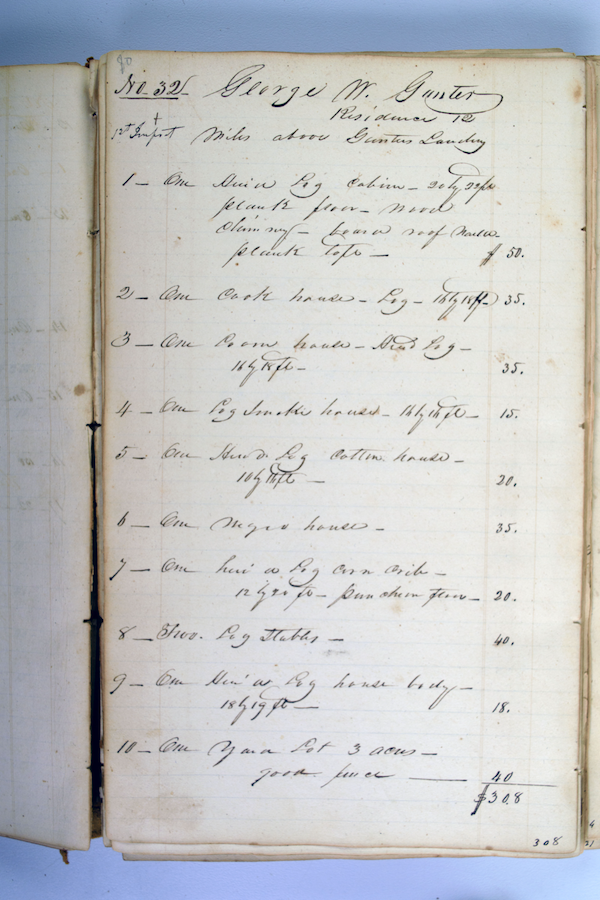 90
No. 32 George W. Gunter
Residence 12
1st Impt Miles above Gunters Landing
1 – One Hewd Log Cabin – 20 by 22 ft
plank floor – wood
chimny – board roof
plank loft – $ 50.
2 – One Cook house – Log – 16 by 18 ft – 35.
3 – One Loom house – Hewd Log –
16 by 18 ft – 35.
4 – One Log Smoke house – 16 by 16 ft – 15.
5 – One Hewd Log Cotton house –
10 by 16 ft – 20.
6 – One Negro house – 35.
7 – One hew'd Log corn crib –
12 by 20 ft – puncheon floor – 20.
8 – Two. Log Stables – 40.
9 – One Hew'd Log house body –
18 by 19 ft – 18.
10 – One Yard Lot 3 acres –
good fence — 40
$308
308